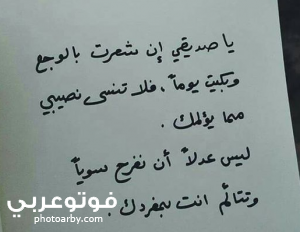 يا صديقي إن شعرت بالوجع
وبكيت يوماً ، فلا تنسى نصيبي
مما يؤلمك .
ليس عدلاً أن نفرح سوياً
وتتألم انت بمفردك .
فوتوعربي
photoarby.com